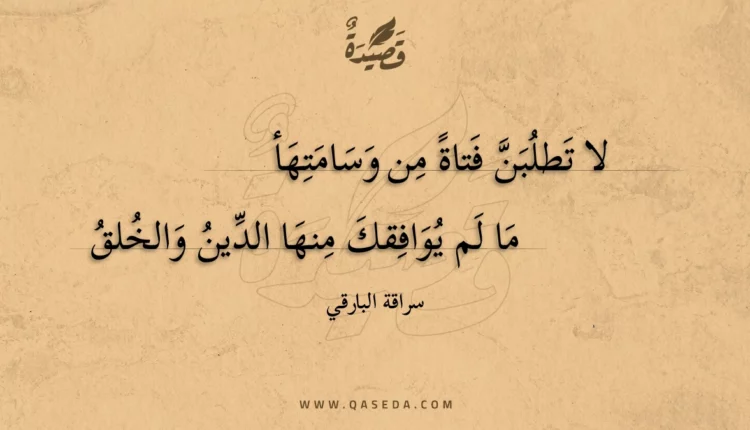 قَصِيْدَةٌ
لا تَطلُبَنَّ فَتاةً مِن وَسَامَتِهَأ
مَا لَم يُوَافِقكَ مِنهَا الدِّينُ وَالخُلقُ
سراقة البارقي
WWW.QASEDA.COM